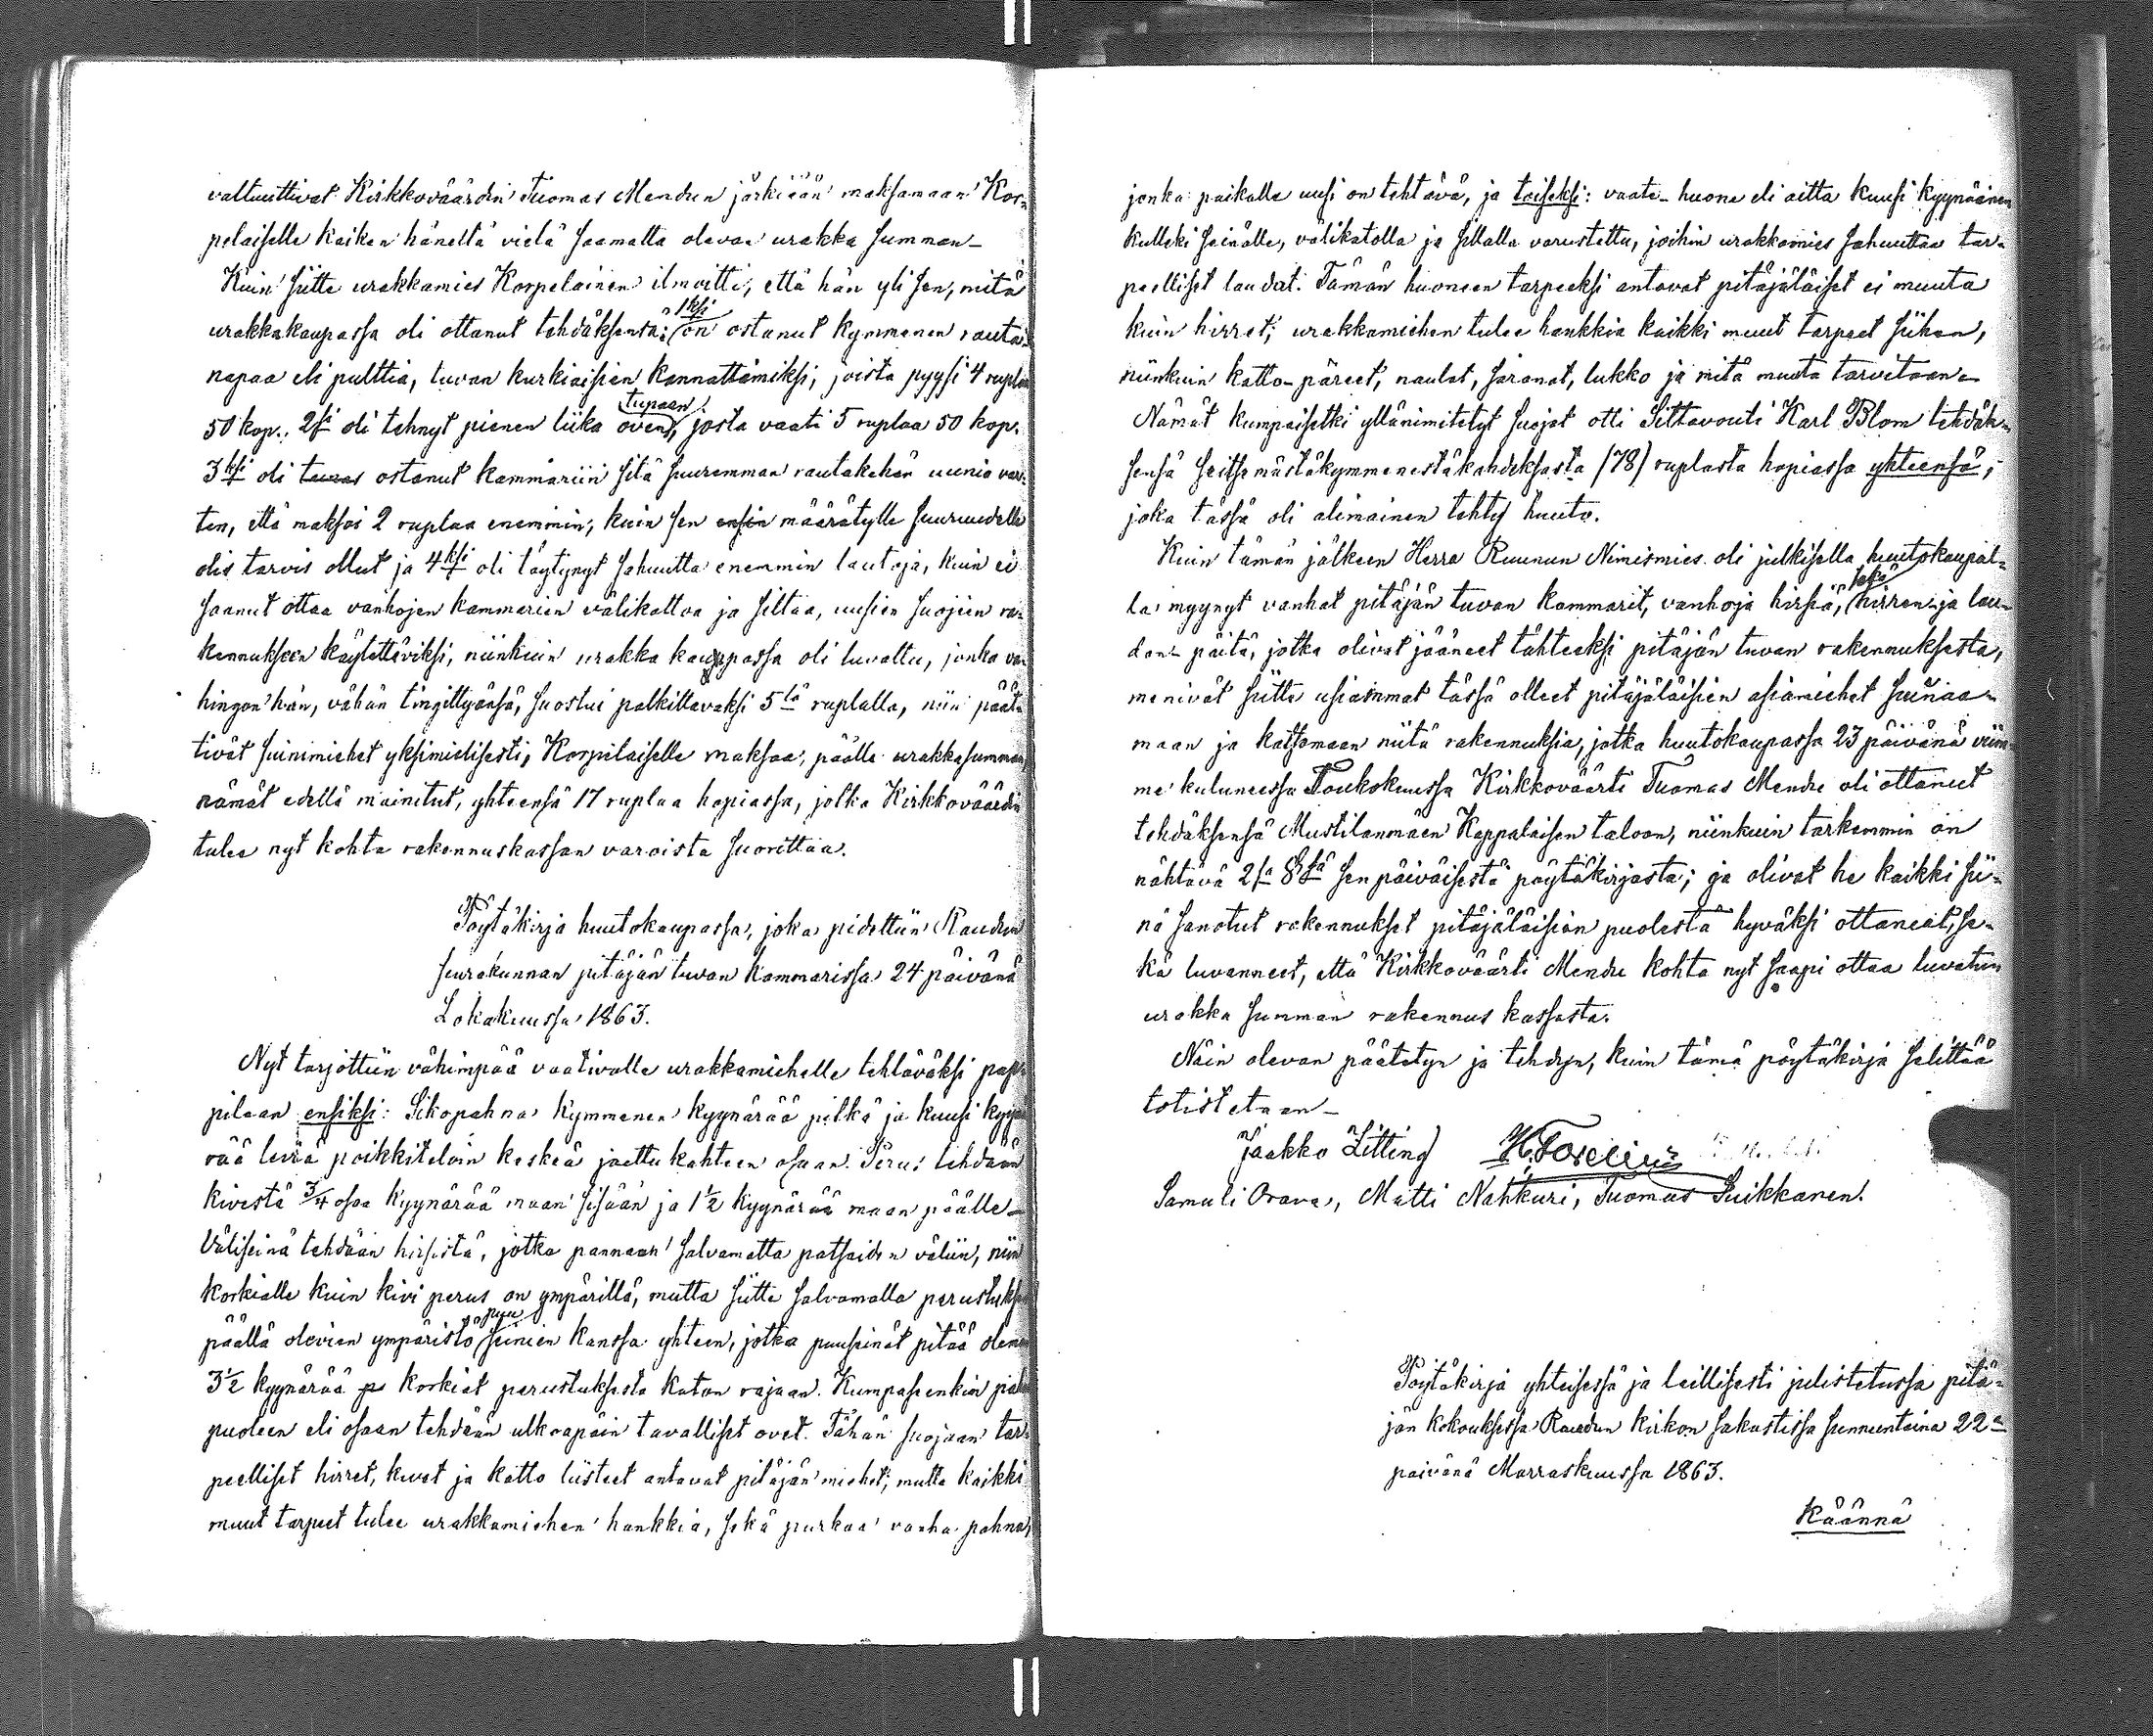 valtuuttivat Kirkkoväärdin Tuomas Mendren järkiään maksamaan Kor-
pelaiselle kaiken häneltä vielä saamatta olevan urakka summan_
Kuin sitte urakkamies Korpelainen ilmoitti, että hän yli sen, mitä
urakkakaupassa oli ottanut tehdäksensä: 1ksi on ostanut kymmenen rauta-
napaa eli pulttia, tuvan kurkiaisien kannattimiksi, joista pyysi 4 ruplaa
50 kop. 2si oli tehnyt pienen liika oven tupaan, josta vaati 5 ruplaa 50 kop.
3ksi oli ostanut kammariin sitä suuremman rautakehän uunia var-
ten, että maksoi 2 ruplaa enemmin, kuin sen ensin määrätylle suuruudelle
olis tarvis ollut ja 4ksi oli täytynyt sahuutta enemmin lautoja, kuin ei
saanut ottaa vanhojen kammarien välikattoa ja siltaa, uusien suojien ra-
kennukseen käytettäviksi, niinkuin urakka kaupassa oli luvattu, jonka va-
hingon hän, vähän tingittyänsä, suostui palkittavaksi 5lä ruplalla, niin päät-
tivät sunimiehet yksimielisesti, Korpilaiselle maksaa, päälle urakkasumman,
nämät edellä mainitut, yhteensä 17 ruplaa hopiassa, jotka Kirkkoväärdin
tulee nyt kohta rakennuskassan varoista suorittaa.
Pöytäkirja huutokaupassa, joka pidettiin Raudun
seurakunnan pitäjän tuvan kammarissa 24 päivänä
Lokakuussa 1863.
Nyt tarjottiin vähimpää vaativalle urakkamiehelle tehtäväksi pap-
pilaan ensiksi: Sikopahna kymmenen kyynärää pitkä ja kuusi kyynä-
rää leviä poikkiteloin keskeä jaettu kahteen osaan. Perus tehdään
kivestä 3/4 osaa kyynärää maan sisään ja 1 1/2 kyynärää maan päälle_
Väliseinä tehdään hirsistä, jotka pannaan salvamatta patsaiden väliin, niin
korkialle kuin kivi perus on ympärillä, mutta sitte salvamalla perustuksen
päällä olevien ympäristö puu seinien kanssa yhteen, jotka puuseinät pitää oleman
3 1/2 kyynärää korkiat perustuksesta katon rajaan. Kumpasenkin pahna
puoleen eli osaan tehdään ulkoapäin tavalliset ovet. Tähän suojaan tar-
peelliset hirret, kivet ja katto liisteet antavat pitäjän miehet; mutta kaikki
muut tarpeet tulee urakkamiehen hankkia, sekä purkaa vanha pahna,
jonka paikalle uusi on tehtävä, ja toiseksi: vaate-huone eli aitta kuusi kyynärinen
kulleki seinälle, välikatolla ja sillalla varustettu, joihin urakkamies sahuuttaa tar-
peelliset laudat. Tämän huoneen tarpeeksi antavat pitäjäläiset ei muuta
kuin hirret; urakkamiehen tulee hankkia kaikki muut tarpeet siihen,
niinkuin katto-päreet, naulat, saranat, lukko ja mitä muuta tarvitaan_
Nämät kumpaisetki yllänimitetyt suojat otti Siltavouti Karl Blom tehdäk-
sensä seitsemästäkymmenestäkahdeksasta (78) ruplasta hopiassa yhteensä,
joka tässä oli alimainen tehty huuto.
Kuin tämän jälkeen Herra Ruunun Nimismies oli julkisella huutokaupal-
la myynyt vanhat pitäjän tuvan kammarit, vanhoja hirsiä, sekä hirren ja lau-
dan-päitä, jotka olivat jääneet tähteeksi pitäjän tuvan rakennuksesta,
menivät sitte usiammat tässä olleet pitäjäläisien asiamiehet suinaa-
maan ja katsomaan niitä rakennuksia, jotka huutokaupassa 23 päivänä viim
me kuluneessa Toukokuussa Kirkkoväärti Tuomas Mendre oli ottanut
tehdäksensä Mustilanmäen Kappalaisen taloon, niinkuin tarkemmin on
nähtävä 2sa 8sä sen päiväisestä pöytäkirjasta; ja olivat he kaikki sii-
nä sanotut rakennukset pitäjäläisien puolesta hyväksi ottaneet, se-
kä luvanneet, että Kirkkoväärti Mendre kohta nyt saapi ottaa luvatun
urakka summan rakennus kassasta.
Näin olevan päätetyn ja tehdyn, kuin tämä pöytäkirja selittää
totistetaan_
Jaakko Litting
Samuli Orava, Matti Nahkuri, Tuomas Suikkanen.
Pöytäkirja yhteisessä ja laillisesti julistetussa pitä-
jän kokouksessa Raudun kirkon sakastissa sunnuntaina 22na
päivänä Marraskuussa 1863.
Käännä